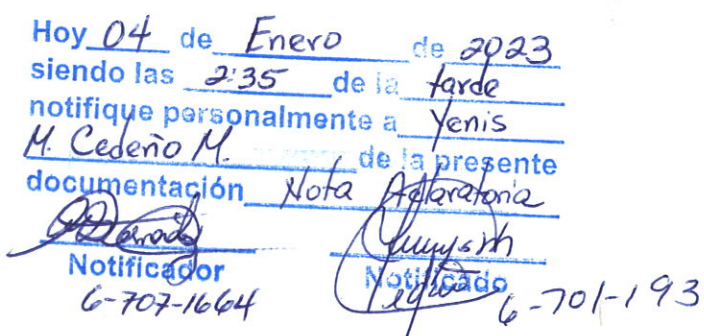 Hoy 04 de Enero de 2023
siendo las 2:35 de la tarde
notifique personalmente a Yenis
M. Cedeño M. de la presente
documentación Nota Aclaratoria
Notificador Notificado
6-707-1664 6-701-193